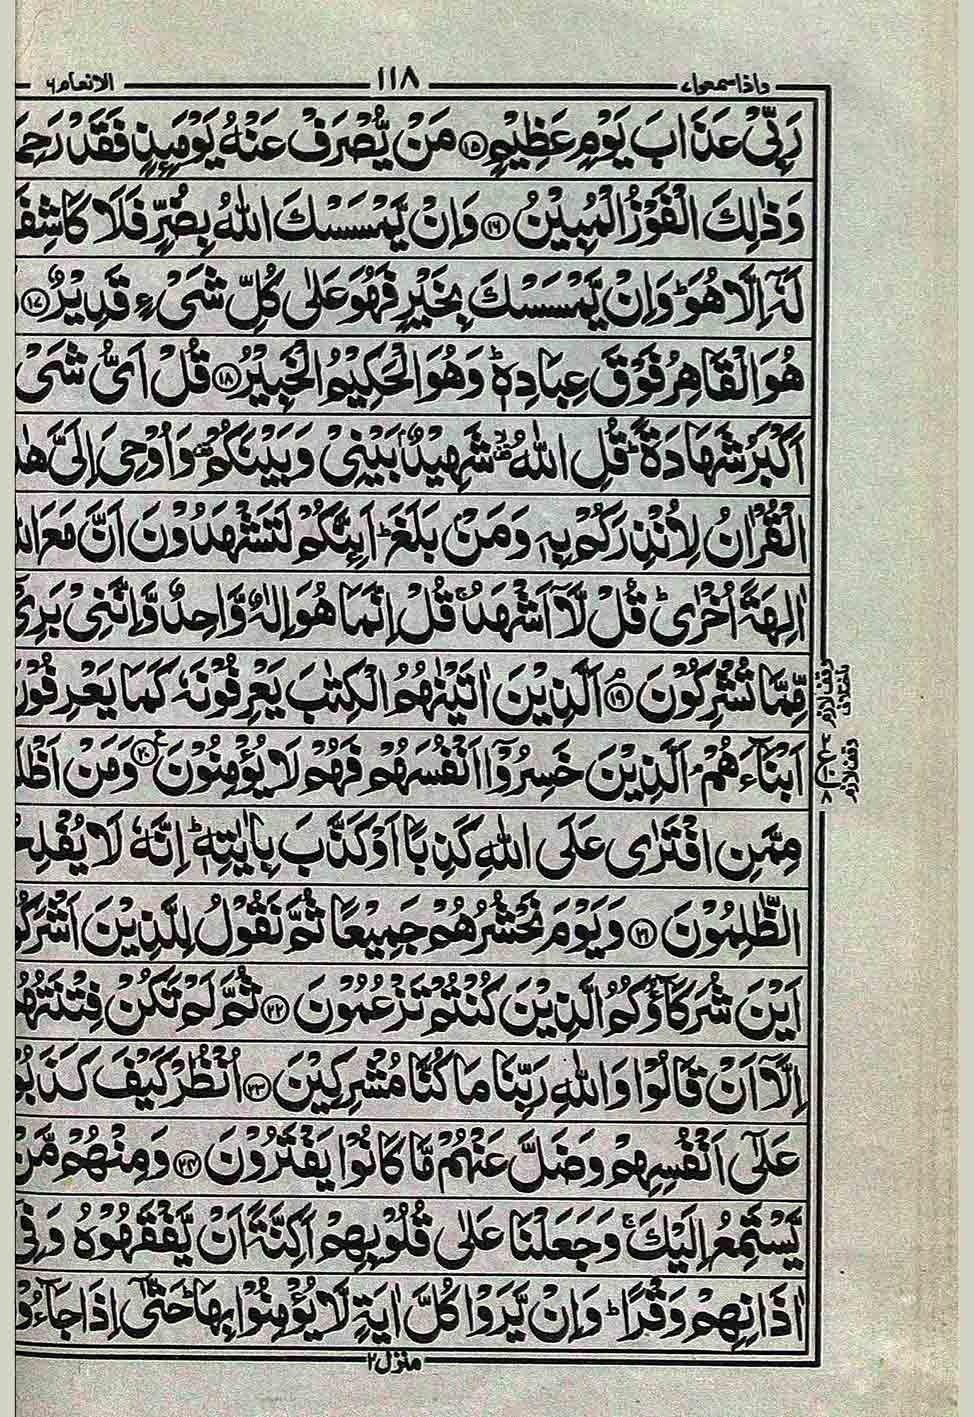 واذاسمعوا۷ ۱۱۸ الانعام۶
رَبِّیْ عَذَابَ یَوْمٍ عَظِیْمٍ ﴿۱۵﴾ مَنْ یُّصْرَفْ عَنْهُ یَوْمَىِٕذٍ فَقَدْ رَحِمَ
وَذٰلِكَ الْفَوْزُ الْمُبِیْنُ ﴿۱۶﴾ وَاِنْ یَّمْسَسْكَ اللّٰهُ بِضُرٍّ فَلَا كَاشِفَ
لَهٗۤ اِلَّا هُوَ ؕ وَاِنْ یَّمْسَسْكَ بِخَیْرٍ فَهُوَ عَلٰی كُلِّ شَیْءٍ قَدِیْرٌ ﴿۱۷﴾
هُوَ الْقَاهِرُ فَوْقَ عِبَادِهٖ ؕ وَهُوَ الْحَكِیْمُ الْخَبِیْرُ ﴿۱۸﴾ قُلْ اَیُّ شَیْ
اَكْبَرُ شَهَادَةً ؕ قُلِ اللّٰهُ ۙ۫ شَهِیْدٌۢ بَیْنِیْ وَبَیْنَكُمْ ۫ وَاُوْحِیَ اِلَیَّ هٰذَ
الْقُرْاٰنُ لِاُنْذِرَكُمْ بِهٖ وَمَنْۢ بَلَغَ ؕ اَىِٕنَّكُمْ لَتَشْهَدُوْنَ اَنَّ مَعَ اللّٰ
اٰلِهَةً اُخْرٰی ؕ قُلْ لَّاۤ اَشْهَدُ ۚ قُلْ اِنَّمَا هُوَ اِلٰهٌ وَّاحِدٌ وَّاِنَّنِیْ بَرِیْٓ
مِّمَّا تُشْرِكُوْنَ ﴿۱۹﴾ۘ اَلَّذِیْنَ اٰتَیْنٰهُمُ الْكِتٰبَ یَعْرِفُوْنَهٗ كَمَا یَعْرِفُوْنَ
اَبْنَآءَهُمْ ۘ اَلَّذِیْنَ خَسِرُوْۤا اَنْفُسَهُمْ فَهُمْ لَا یُؤْمِنُوْنَ ﴿۲۰﴾ وَمَنْ اَظْلَ
مِمَّنِ افْتَرٰی عَلَی اللّٰهِ كَذِبًا اَوْ كَذَّبَ بِاٰیٰتِهٖ ؕ اِنَّهٗ لَا یُفْلِحُ
الظّٰلِمُوْنَ ﴿۲۱﴾ وَیَوْمَ نَحْشُرُهُمْ جَمِیْعًا ثُمَّ نَقُوْلُ لِلَّذِیْنَ اَشْرَكُوْ
اَیْنَ شُرَكَآؤُكُمُ الَّذِیْنَ كُنْتُمْ تَزْعُمُوْنَ ﴿۲۲﴾ ثُمَّ لَمْ تَكُنْ فِتْنَتُهُ
اِلَّاۤ اَنْ قَالُوْا وَاللّٰهِ رَبِّنَا مَا كُنَّا مُشْرِكِیْنَ ﴿۲۳﴾ اُنْظُرْ كَیْفَ كَذَبُوْ
عَلٰۤی اَنْفُسِهِمْ وَضَلَّ عَنْهُمْ مَّا كَانُوْا یَفْتَرُوْنَ ﴿۲۴﴾ وَمِنْهُمْ مَّنْ
یَّسْتَمِعُ اِلَیْكَ ۚ وَجَعَلْنَا عَلٰی قُلُوْبِهِمْ اَكِنَّةً اَنْ یَّفْقَهُوْهُ وَفِیْ
اٰذَانِهِمْ وَقْرًا ؕ وَاِنْ یَّرَوْا كُلَّ اٰیَةٍ لَّا یُؤْمِنُوْا بِهَا ؕ حَتّٰۤی اِذَا جَآءُوْ
منزل۲